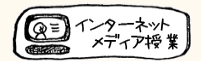 インターネット
メディア授業